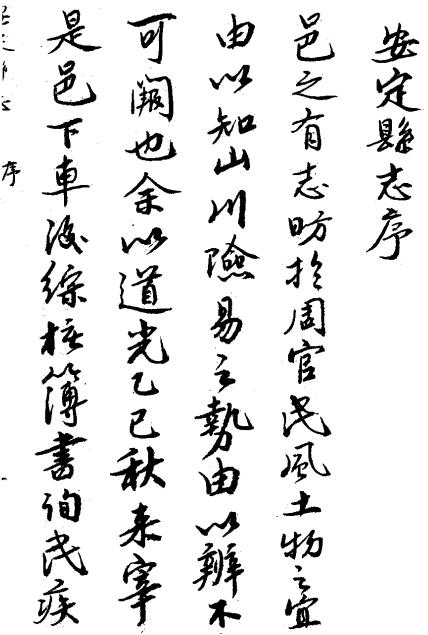 安定縣志序
邑之有志昉於周官民風土物之宜
由以知山川險易之勢由以辨不
可闕也余以道光乙巳秋來宰
是邑下車後綜核簿書詢民疾
序